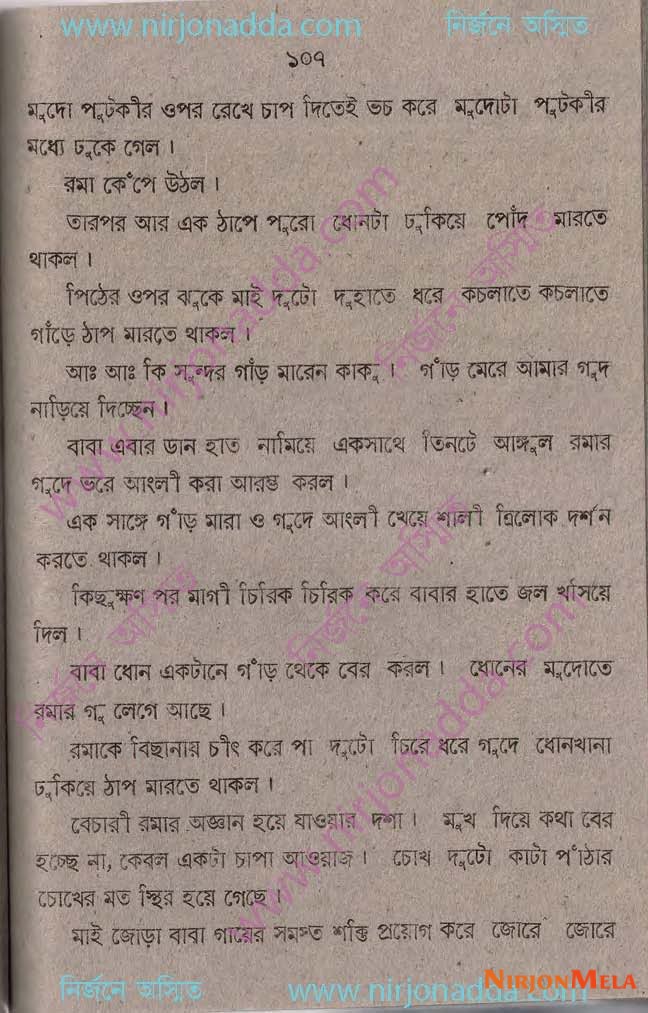 www.nirjonadda.com নির্জনে অস্মিত
১০৭
মুদো পুটকীর ওপর রেখে চাপ দিতেই ভচ করে মুদোটা পুটকীর
মধ্যে ঢুকে গেল।
রমা কেঁপে উঠল।
তারপর আর এক ঠাপে পুরো ধোনটা ঢুকিয়ে পোঁদ মারতে
থাকল।
পিঠের ওপর ঝুকে মাই দুটো দুহাতে ধরে কচলাতে কচলাতে
গাঁড়ে ঠাপ মারতে থাকল।
আঃ আঃ কি সুন্দর গাঁড় মারেন কাকু। গাঁড় মেরে আমার গুদ
নাড়িয়ে দিচ্ছেন।
বাবা এবার ডান হাত নামিয়ে একসাথে তিনটে আঙ্গুল রমার
গুদে ভরে আংলী করা আরম্ভ করল।
এক সাঙ্গে গাঁড় মারা ও গুদে আংলী খেয়ে শালী ত্রিলোক দর্শন
করতে থাকল।
কিছুক্ষণ পর মাগী চিরিক চিরিক করে বাবার হাতে জল খসিয়ে
দিল।
বাবা ধোন একটানে গাঁড় থেকে বের করল। ধোনের মুদোতে
রমার গু লেগে আছে।
রমাকে বিছানায় চীৎ করে পা দুটো চিরে ধরে গুদে ধোনখানা
ঢুকিয়ে ঠাপ মারতে থাকল।
বেচারী রমার অজ্ঞান হয়ে যাওয়ার দশা। মুখ দিয়ে কথা বের
হচ্ছে না, কেবল একটা চাপা আওয়াজ। চোখ দুটো কাটা পাঁঠার
চোখের মত স্থির হয়ে গেছে।
মাই জোড়া বাবা গায়ের সমস্ত শক্তি প্রয়োগ করে জোরে জোরে
নির্জনে অস্মিত www.nirjonadda.com
NIRJONMELA